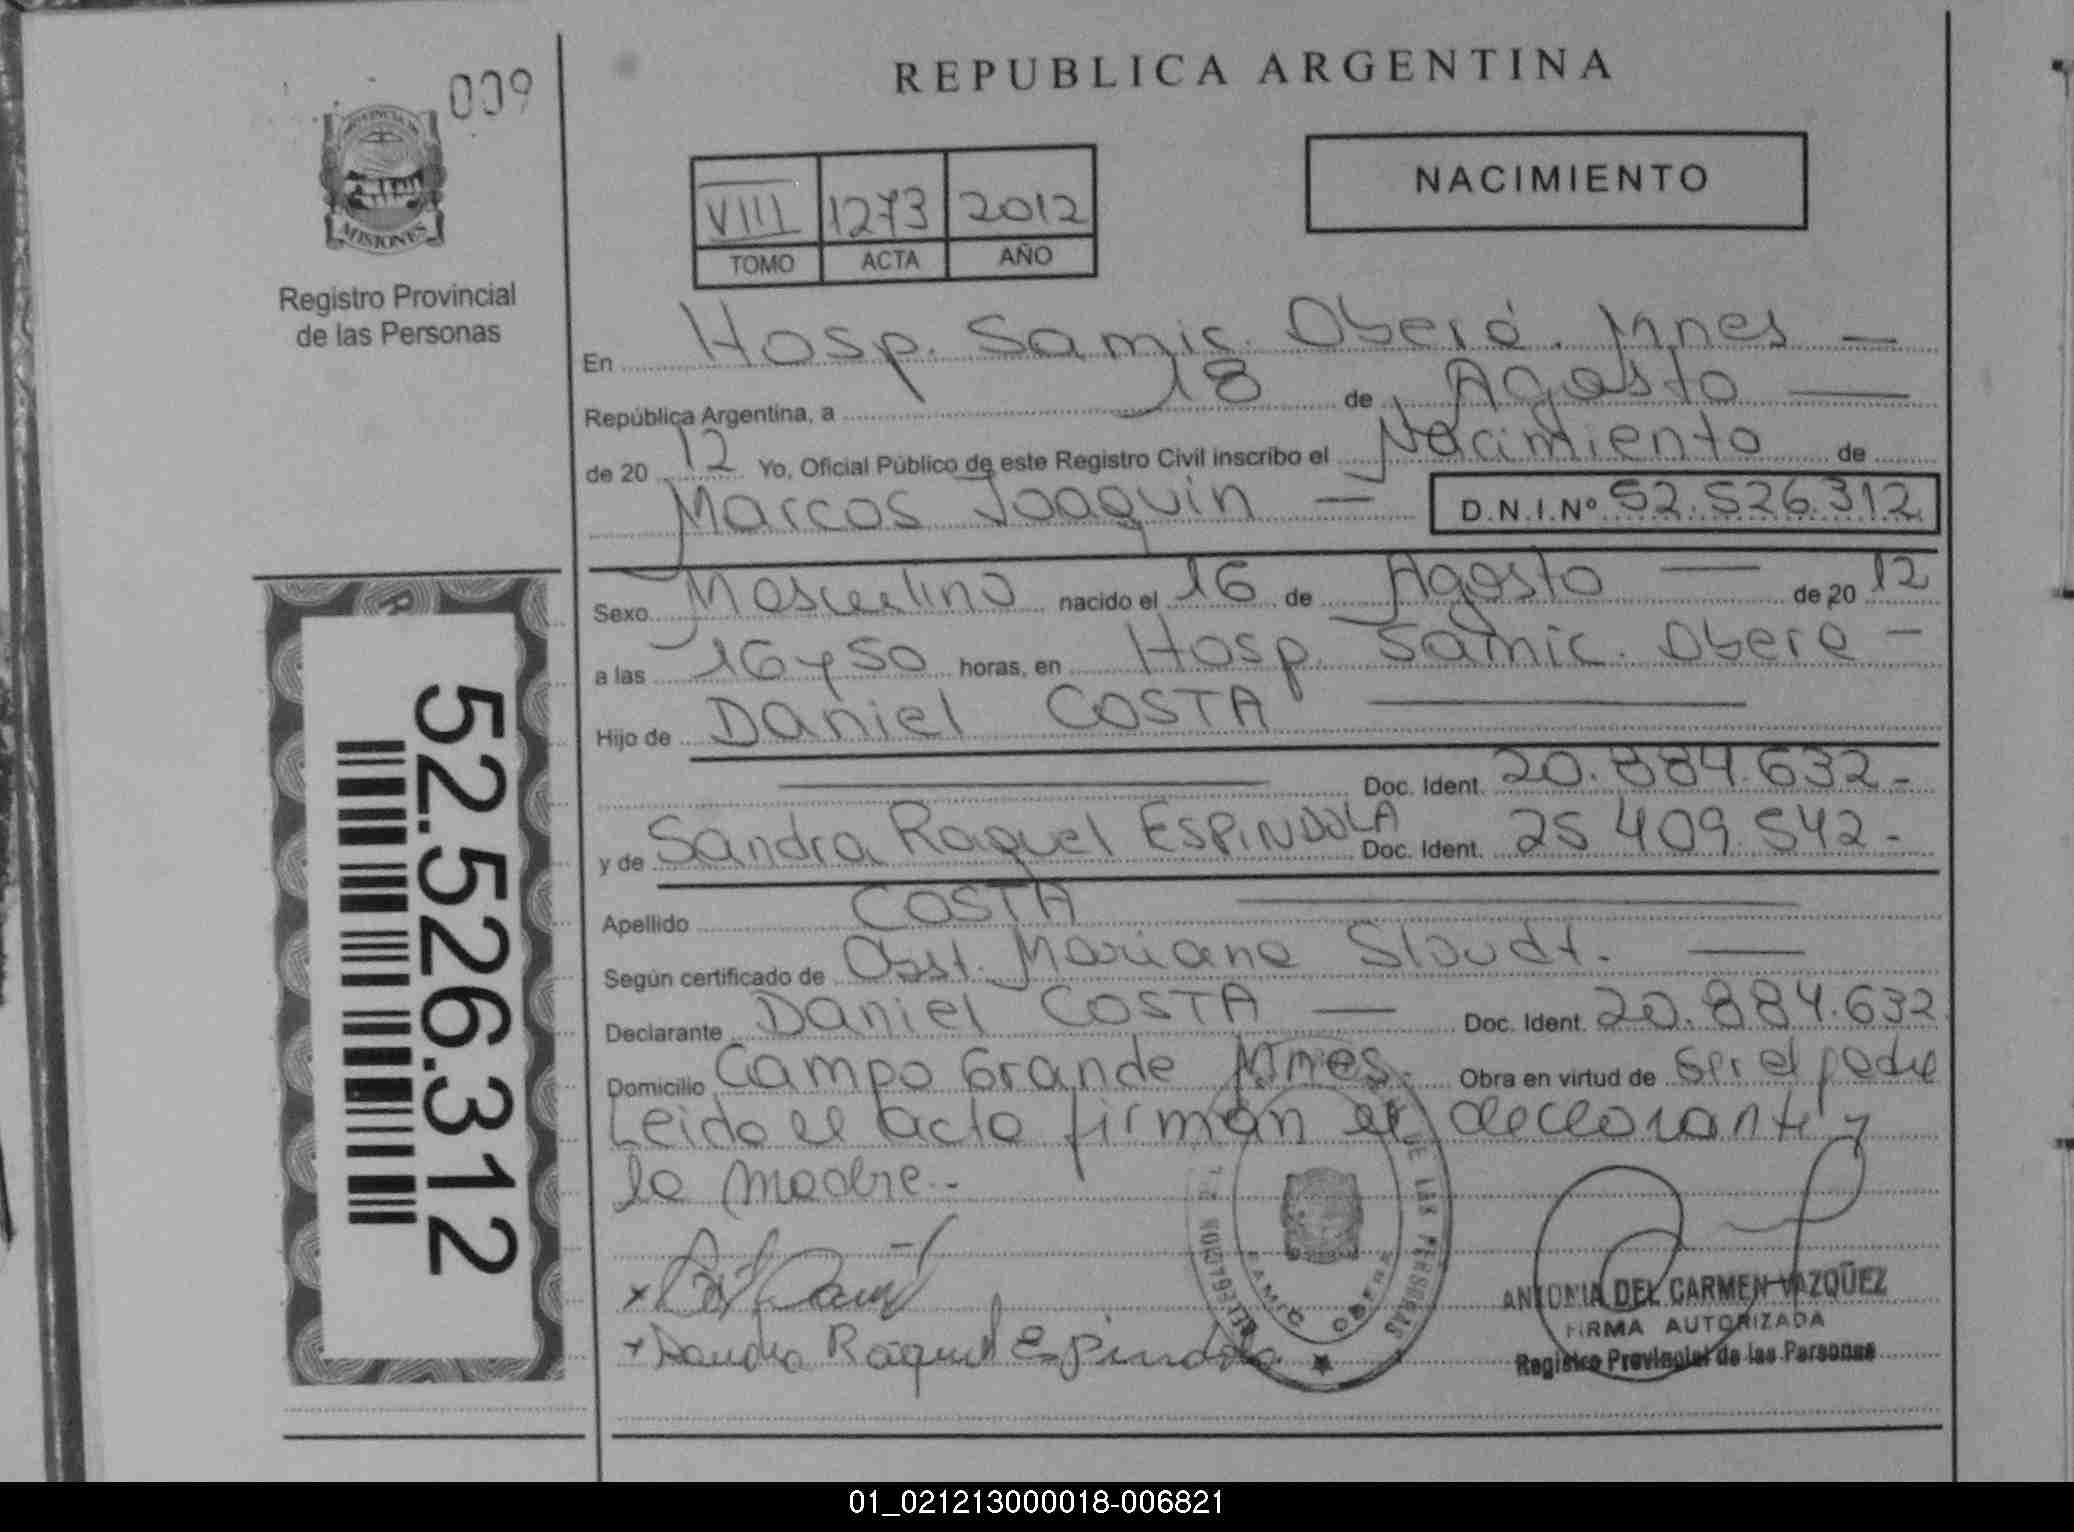 009
PROVINCIA DE
MISIONES
Registro Provincial
de las Personas
REPUBLICA ARGENTINA
VIII 1273 2012
TOMO ACTA AÑO
NACIMIENTO
En Hosp. Samic. Oberá. Mnes —
República Argentina, a 18 de Agosto —
de 20 12 Yo, Oficial Público de este Registro Civil inscribo el Nacimiento de
Marcos Joaquin — D.N.I.Nº 52.526.312
Sexo Masculino nacido el 16 de Agosto — de 20 12
a las 16 y 50 horas, en Hosp. Samic. Oberá —
Hijo de Daniel COSTA —
— Doc. Ident. 20.884.632-
y de Sandra Raquel ESPINDOLA Doc. Ident. 25 409.542-
Apellido COSTA —
Según certificado de Obst. Mariana Stoudt. —
Declarante Daniel COSTA — Doc. Ident. 20.884.632
Domicilio Campo Grande Mnes. Obra en virtud de ser el padre
Leido el acta firman el declarante y
la madre.-
x
x Sandra Raquel Espindola
DE LAS PERSONAS
SAMIC OBERA
ANTONIA DEL CARMEN VAZQÜEZ
FIRMA AUTORIZADA
Registro Provincial de las Personas
52.526.312
01_021213000018-006821